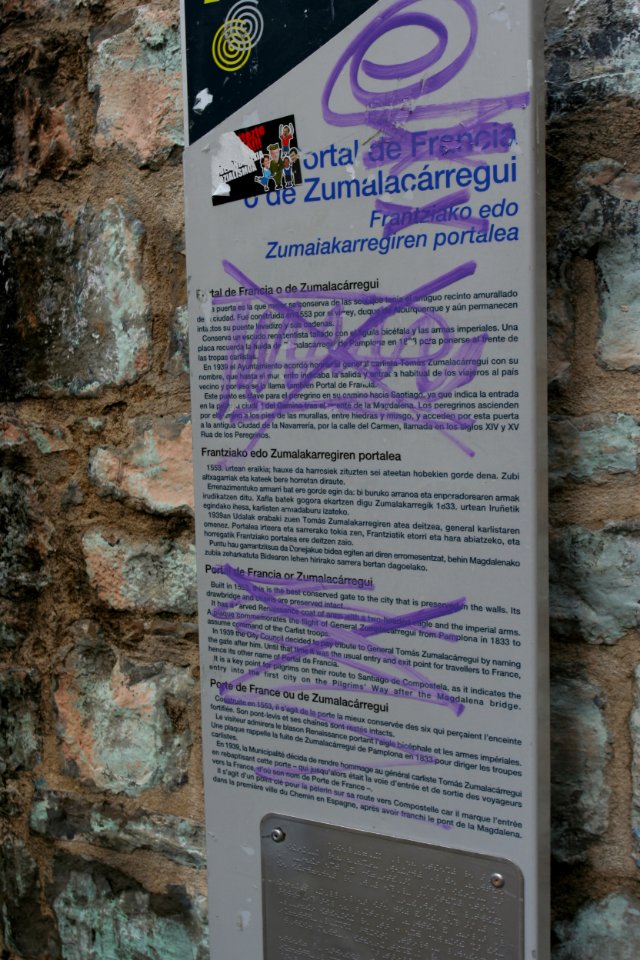 ortal de Francia
o de Zumalacárregui
Frantziako edo
Zumaiakarregiren portalea
Portal de Francia o de Zumalacárregui
a puerta es la que mejor se conserva de las seis que tenía el antiguo recinto amurallado
de la ciudad. Fue construida en 1553 por el virrey, duque de Alburquerque y aún permanecen
intactos su puente levadizo y sus cadenas.
Conserva un escudo renacentista tallado con el águila bicéfala y las armas imperiales. Una
placa recuerda la huida de Zumalacárregui de Pamplona en 1833 para ponerse al frente de
las tropas carlistas.
En 1939 el Ayuntamiento acordó honrar al general carlista Tomás Zumalacárregui con su
nombre, que hasta el momento indicaba la salida y entrada habitual de los viajeros al país
vecino y se llama también Portal de Francia.
Este punto es clave para el peregrino en su camino hacia Santiago, ya que indica la entrada
en la primera ciudad del Camino tras el puente de la Magdalena. Los peregrinos ascienden
por el camino a los pies de las murallas, entre hiedras y musgo, y acceden por esta puerta
a la antigua Ciudad de la Navarrería, por la calle del Carmen, llamada en los siglos XIV y XV
Rua de los Peregrinos.
Frantziako edo Zumalakarregiren portalea
1553. urtean eraikia; hauxe da harresiek zituzten sei ateetan hobekien gorde dena. Zubi
altxagarriak eta kateek bere horretan diraute.
Errenazimentuko armarri bat ere gorde egin da: bi buruko arranoa eta enperadorearen armak
irudikatzen ditu. Xafla batek gogora ekartzen digu Zumalakarregik 1833. urtean Iruñetik
egindako ihesa, karlisten armadaburu izateko.
1939an Udalak erabaki zuen Tomás Zumalakarregiren atea deitzea, general karlistaren
omenez. Portalea irteera eta sarrerako tokia zen, Frantziatik etorri eta hara abiatzeko, eta
horregatik Frantziako portalea ere deitzen zaio.
Puntu hau garrantzitsua da Donejakue bidea egiten ari diren erromesentzat, behin Magdalenako
zubia zeharkatuta Bidearen lehen hirirako sarrera bertan dagoelako.
Portal de Francia or Zumalacárregui
Built in 1553, this is the best conserved gate to the city that is preserved in the walls. Its
drawbridge and chains are preserved intact.
It has a carved Renaissance coat of arms with a two-headed eagle and the imperial arms.
A plaque commemorates the flight of General Zumalacárregui from Pamplona in 1833 to
assume command of the Carlist troops.
In 1939 the City Council decided to pay tribute to General Tomás Zumalacárregui by naming
the gate after him. Until that time it was the usual entry and exit point for travellers to France,
hence its other name of Portal de Francia.
It is a key point for pilgrims on their route to Santiago de Compostela, as it indicates the
entry into the first city on the Pilgrims' Way after the Magdalena bridge.
Porte de France ou de Zumalacárregui
Construite en 1553, il s'agit de la porte la mieux conservée des six qui perçaient l'enceinte
fortifiée. Son pont-levis et ses chaînes sont restés intacts.
Le visiteur admirera le blason Renaissance portant l'aigle bicéphale et les armes impériales.
Une plaque rappelle la fuite de Zumalacárregui de Pamplona en 1833 pour diriger les troupes
carlistes.
En 1939, la Municipalité décida de rendre hommage au général carliste Tomás Zumalacárregui
en rebaptisant cette porte – qui jusqu'alors était la voie d'entrée et de sortie des voyageurs
vers la France, d'où son nom de Porte de France –.
Il s'agit d'un point clé pour le pèlerin sur sa route vers Compostelle car il marque l'entrée
dans la première ville du Chemin en Espagne, après avoir franchi le pont de la Magdalena.